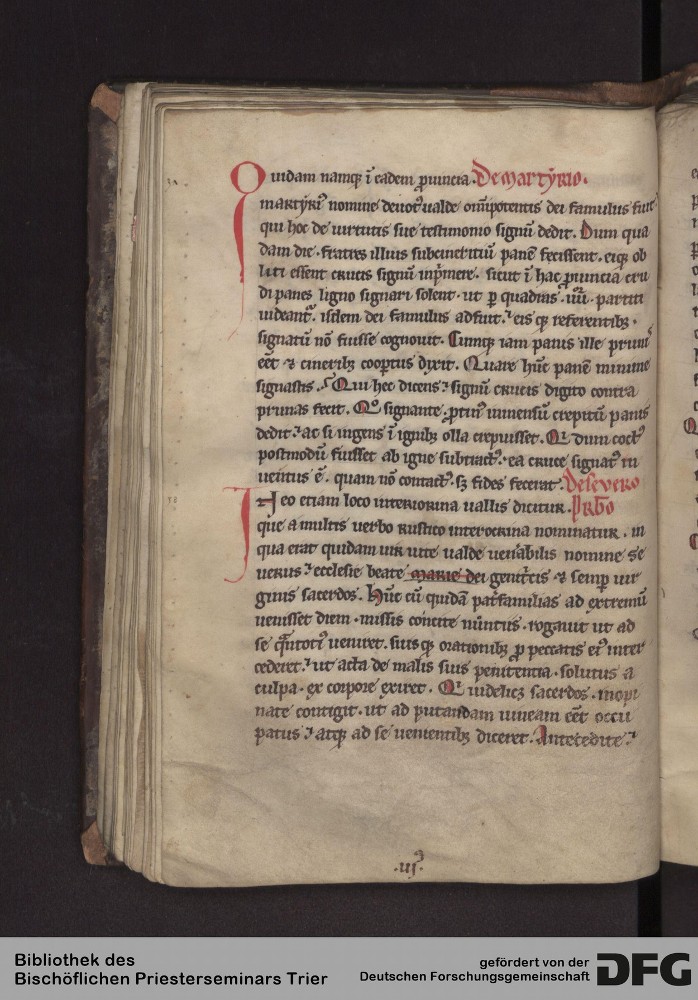 Quidam namq; ī eadem ꝓuincia. De martyrio.
martyri᷒ nomine deuot᷒ ualde om̄ipotentis dei famulus fuit
qui hoc de uirtutis sue testimonio signū dedit. Dum qua
dam die. fratres illius subcineritiū panē fecissent. eiq; ob
liti essent crucis signū inp̄mere. sicut ī hac ꝓuincia cru
di panes ligno signari solent. ut ꝑ quadras .iiii. partiti
uideant᷒. isdem dei famulus adfuit. eis q; referentib;.
signatū nō fuisse cognouit. Cumq; iam panis ille prunis
eēt ⁊ cinerib; coopertus dixit. Quare hūc panē minime
signastis. Qui hec dicens. signū crucis digito contra
prunas fecit. Qͦ signante. ꝓtin᷒ inmensū crepitū panis
dedit. ac si ingens ī ignib; olla crepuisset. Qi dum coct᷒
postmodū fuisset ab igne subtract᷒. ea cruce signat᷒ in
uentus ē. quam nō contact᷒. sȝ fides fecerat. De severo
In eo etiam loco interiorina uallis dicitur. prbo
que a multis uerbo rustico interocrina nominatur. in
qua erat quidam uir uite ualde uenerabilis nomine se
uerus. ecclesie beate marie dei genitricis ⁊ semp uir
ginis sacerdos. Hūc cū quidā pat̄familias ad extremū
uenisset diem. missis concite nūntus. rogauit ut ad
se q̄ntoti᷒ ueniret. suisq; orationib; ꝓ peccatis ei᷒ inter
cederet. ut acta de malis suis penitentia. solutus a
culpa. ex corpore exiret. Qi uidelicȝ sacerdos. inopi
nate contigit. ut ad putandam uineam eēt occu
patus. atq; ad se uenientib; diceret. Antecedite.
.iii.
Bibliothek des
Bischöflichen Priesterseminars Trier
gefördert von der
Deutschen Forschungsgemeinschaft
DFG